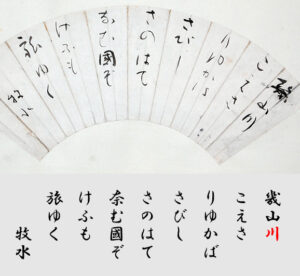 幾山川
こえさ
りゆかば
さびし
さのはて
奈む國ぞ
けふも
旅ゆく
牧水
幾山川
こえさ
りゆかば
さびし
さのはて
奈む國ぞ
けふも
旅ゆく
牧水